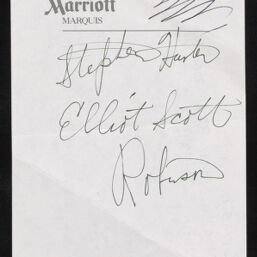 Marriott
MARQUIS
Stephen Hunter
Elliot Scott
Robinson